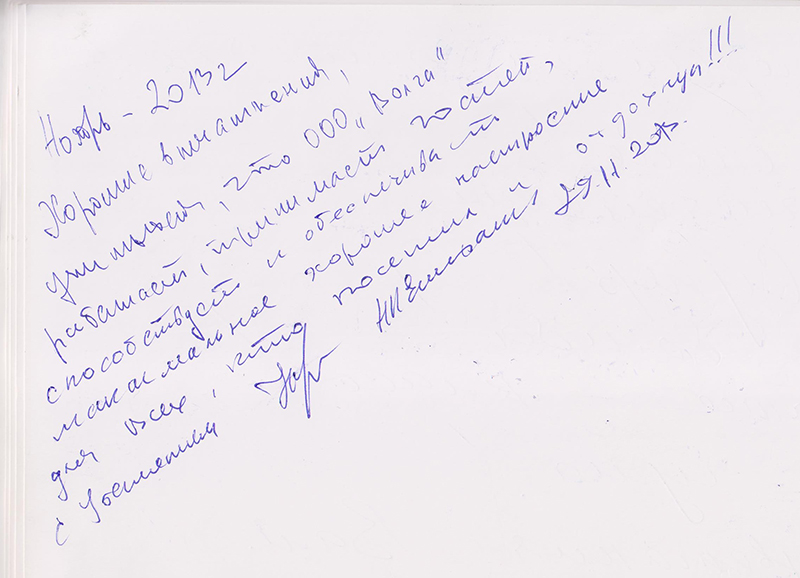 Ноябрь – 2013г
Хорошие впечатления,
что ООО „Волга“
работает, принимает гостей,
способствует и обеспечивает
максимальное хорошее настроение
для всех, кто посетил и отдохнул!!!
с Уважением 29.11.2013.